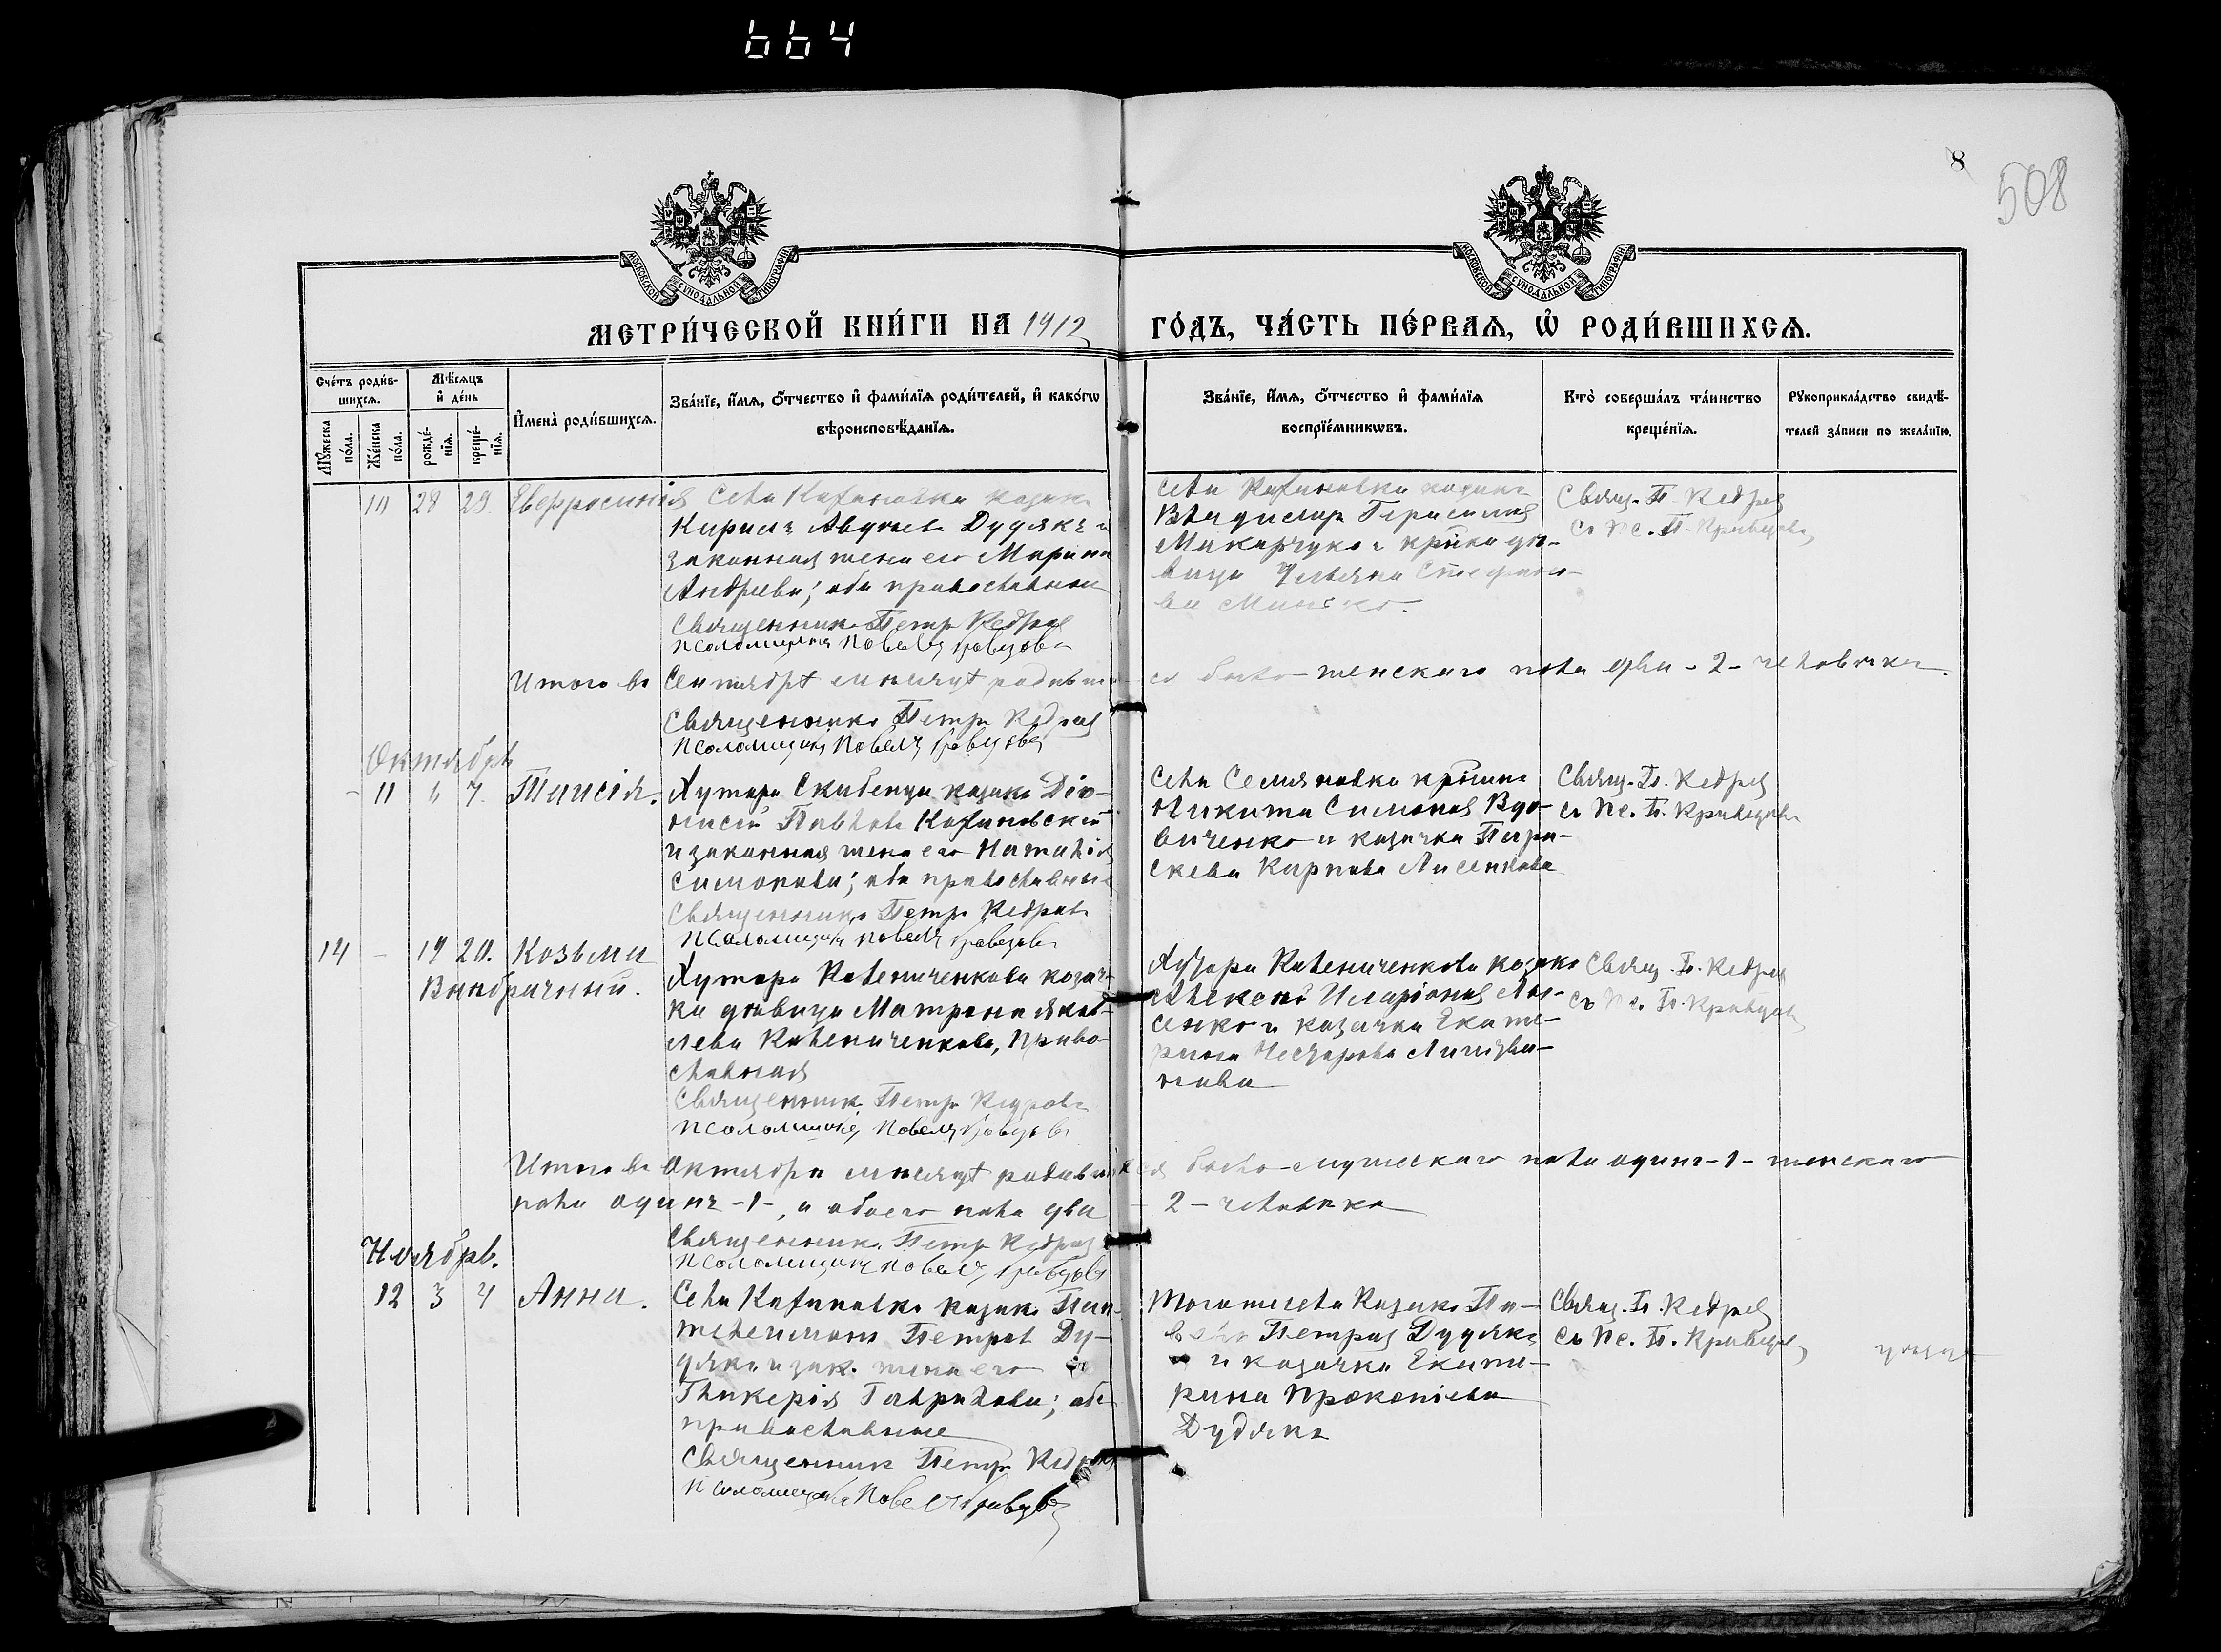 664
8
508
МОСКОВСКОЙ СУНОДАЛЬНОЙ ТИПОГРАФІИ
МОСКОВСКОЙ СУНОДАЛЬНОЙ ТИПОГРАФІИ
МЕТРИ́ЧЕСКОЙ КНИ́ГИ НА 1912 ГО́ДЪ, ЧА́СТЬ ПЕ́РВАѦ, Ѡ҆ РОДИ́ВШИХСѦ.
Сче́тъ роди́в-
шихсѧ.
Мѣ́сѧцъ
и҆ де́нь
Мꙋ́жеска по́ла.
Же́нска по́ла.
рожде́-
нїѧ.
креще́-
нїѧ.
И҆мена̀ роди́вшихсѧ.
Зва́нїе, и҆́мѧ, ѻ҆́тчество и҆ фами́лїѧ роди́телей, и҆ како́гѡ
вѣроисповѣ́данїѧ.
Зва́нїе, и҆́мѧ, ѻ҆́тчество и҆ фами́лїѧ
воспрїе́мникѡвъ.
Кто̀ соверша́лъ та́инство
креще́нїѧ.
Рꙋкоприкла́дство свидѣ́-
телей за́писи по жела́нїю.
10 28 29. Евфросинія Села казакъ
Кирилъ Дудякъ и
законная жена его Марина
Андреева; оба православные
Священникъ Петръ Кедровъ
Псаломщикъ Павелъ Кравцовъ
Села казакъ
Владиміръ Герасимовъ
Макарчукъ и
вица Ульяна Стефано-
ва
Свящ. П. Кедровъ
съ Пс. П. Кравцовъ
Итого въ Сентябрѣ мѣсяцѣ родилось всего женскаго пола два - 2 - человѣка.
Священникъ Петръ Кедровъ
Псаломщикъ Павелъ Кравцовъ
Октябрь
11 6 7. Таисія.
Хутора Скибенци казакъ Діо-
нисій Павловъ
и законная жена его Наталія
Симонова; оба православные
Священникъ Петръ Кедровъ
Псаломщикъ Павелъ Кравцовъ
Села Семяновка
Никита Симоновъ Вдо-
виченко и казачка Пара-
скева Карпова Лисенкова
Свящ. П. Кедровъ
съ Пс. П. Кравцовъ
14 - 19 20. Козьма
Внѣбрачный.
Хутора казач-
ка дѣвица Матрона Яков-
лева право-
славная
Священникъ Петръ Кедровъ
Псаломщикъ Павелъ Кравцовъ
Хутора казакъ
Алексѣй Иларіоновъ Ли-
сенко и казачка Екате-
рина Несторова
Свящ. П. Кедровъ
съ Пс. П. Кравцовъ
Итого въ Октябрѣ мѣсяцѣ родившихся всего - мужескаго пола одинъ - 1 - женскаго
пола одинъ - 1 -, а обоего пола два - 2 - человѣка
Священникъ Петръ Кедровъ
Псаломщикъ Павелъ Кравцовъ
Ноябрь.
12 3 4 Анна.
Села казакъ Пан-
телеимонъ Петровъ Ду-
дякъ и зак. жена его
Гликерія Гаврилова; оба
православные
Священникъ Петръ Кедровъ
Псаломщикъ Павелъ Кравцовъ
Того же села казакъ Па-
велъ Петровъ Дудякъ
и казачка Екате-
рина Прокопіева
Дудякъ
Свящ. П. Кедровъ
съ Пс. П. Кравцовъ